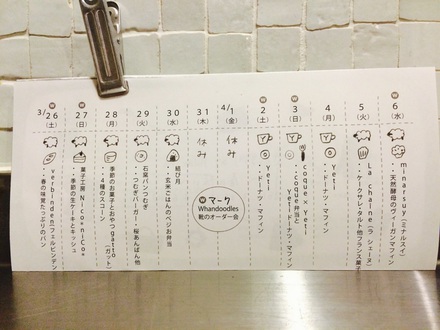 3/26
(土)
verbinden(フェルビンデン)
・春の味覚たっぷりのパン
W
27
(日)
菓子工房 NiconiCo
・季節の生ケーキとキッシュ
28
(月)
季節のお菓子とおやつ gatto(ガット)
・4種のスコーン
29
(火)
石窯パンつむぎ
・つむぎバーガー・桜あんぱん他
30
(水)
結び月
・玄米ごはんのベジお弁当
31
(木)
休み
4/1
(金)
休み
W マーク
Whandoodles
靴のオーダー会
W
2
(土)
Yeti
・ドーナツ・マフィン
W
3
(日)
coque×Yeti
・coque弁当と
Yetiドーナツ・マフィン
4
(月)
Yeti
・ドーナツ・マフィン
5
(火)
La chaine(ラ シェーヌ)
・ケークサレ・タルト他フランス菓子
W
6
(水)
minarusuy(ミナルスイ)
・天然酵母のヴィーガンマフィン